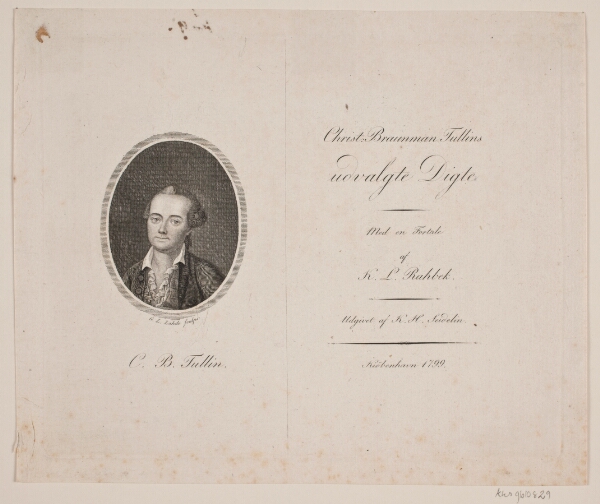 C. B. Tullin.
Christ. Braunman Tullins
udvalgte Digte.
Med en Fortale
af
K. L. Rahbek.
Udgivet af K. H. Seidelin.
Kiöbenhavn 1799.